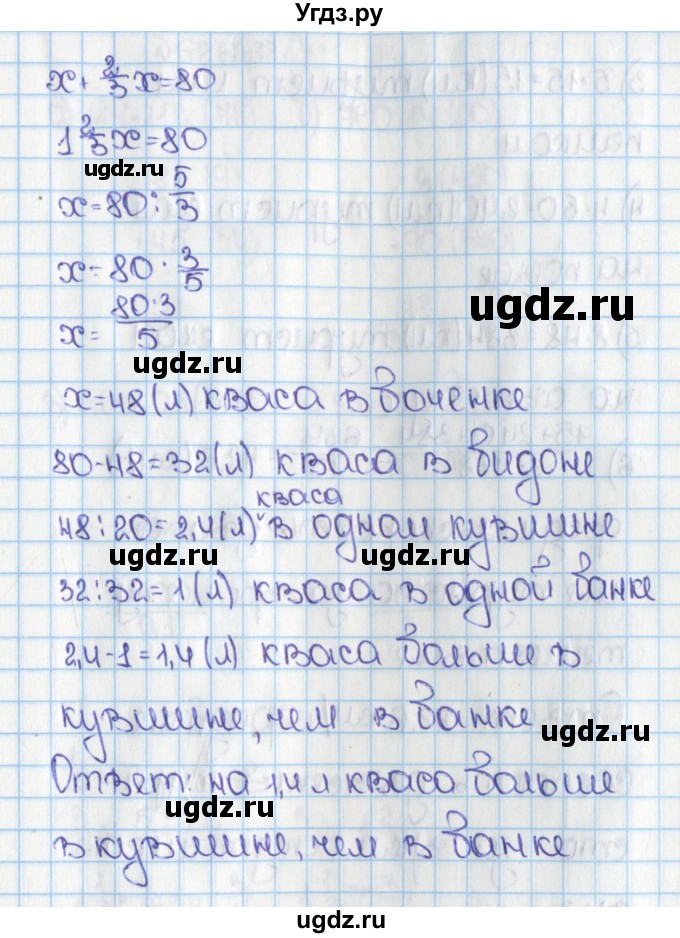 Угдз.ру
x + 2/3 x = 80
1 2/3 x = 80
ugdz.ru
x = 80 : 5/3
x = 80 · 3/5
ugdz.ru
x = 80·3/5
ugdz.ru
x = 48 (л) кваса в боченке
80 - 48 = 32 (л) кваса в бидоне
кваса
48 : 20 = 2,4 (л) ˅ в одном кувшине
ugdz.ru ugdz.ru
32 : 32 = 1 (л) кваса в одной банке
2,4 - 1 = 1,4 (л) кваса больше в
кувшине, чем в банке
ugdz.ru
Ответ: на 1,4 л кваса больше
ugdz.ru
в кувшине, чем в банке
ugdz.ru